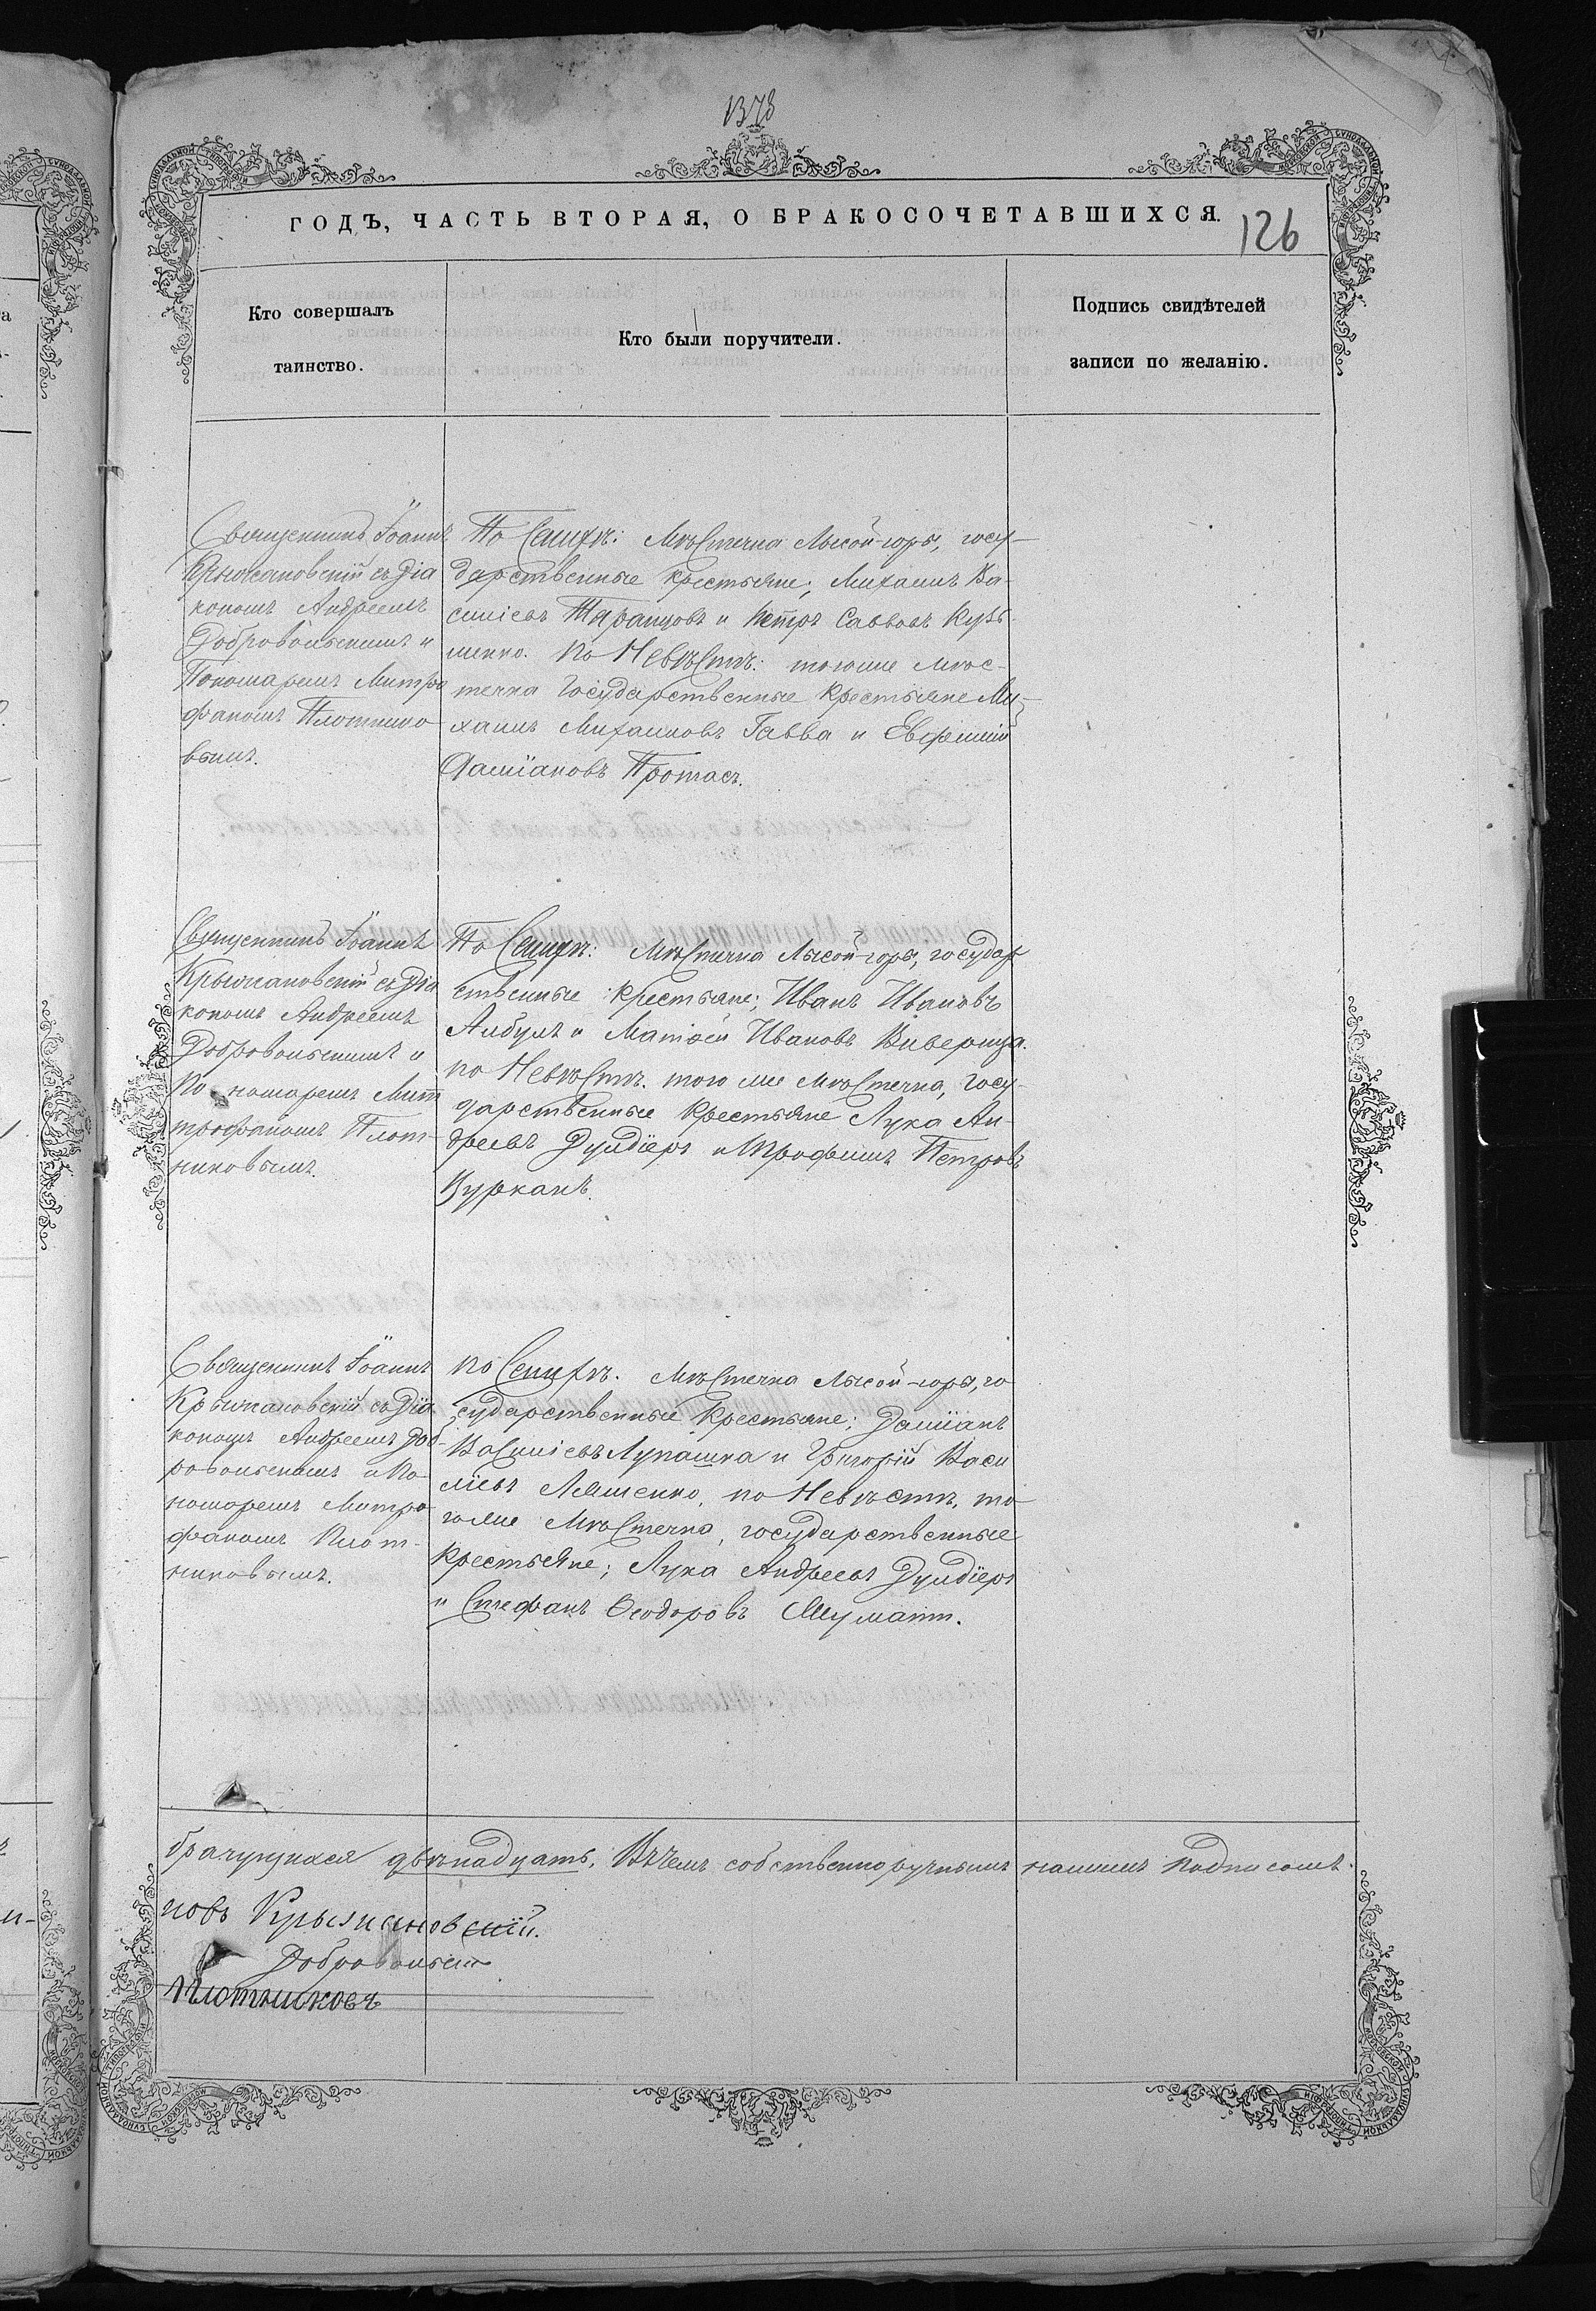 1378
ГОДЪ, ЧАСТЬ ВТОРАЯ, О БРАКОСОЧЕТАВШИХСЯ.
126
Кто совершалъ
таинство.
Кто были поручители.
Подпись свидѣтелей
записи по желанію.
Священникъ Іоаннъ
Крыжановскій съ Діа
кономъ Андреемъ
Добровольскимъ и
Пономаремъ Митро
фаномъ Плотнико
вымъ.
По Женихѣ: Мѣстечка Лысой-горы, госу-
дарственные крестьяне; Михаилъ Ва-
силіевъ Таранцовъ и Петръ Саввовъ Кузь
менко. По Невѣстѣ: тогоже мѣс-
течка Государственные Крестьяне Ми-
хаилъ Михаиловъ Гавва и Евфимій
Даміановъ Протасъ.
Священникъ Іоаннъ
Крыжановскій съ Діа
кономъ Андреемъ
Добровольскимъ и
По номаремъ Мит
трофаномъ Плот-
никовымъ.
По Женихѣ: Мѣстечка Лысой-горы, государ
ственные крестьяне; Иванъ Ивановъ
Албулъ и Матѳей Ивановъ Виверица.
по Невѣстѣ. того же Мѣстечка, Госу-
дарственные Крестьяне Лука Ан-
дреевъ Дулдіеръ и Трофимъ Петровъ
Цурканъ.
Священникъ Іоаннъ
Крыжановскій съ Діа
кономъ Андреемъ Доб-
ровольскимъ и По-
номаремъ Митро
фаномъ Плот-
никовымъ.
по Женихѣ. Мѣстечка Лысой-горы, го
сударственные Крестьяне; Даміанъ
Василіевъ Лупашка и Григорій Васи
ліевъ Ляшенко, по Невѣстѣ, то
гоже Мѣстечка, государственные
Крестьяне; Лука Андреевъ Дулдіеръ
и Стефанъ Ѳеодоровъ
брачущихся двѣнадцать. Въ чемъ собственноручнымъ нашимъ подписомъ.
новъ Крыжановскій.
Добровольскій
Плотниковъ